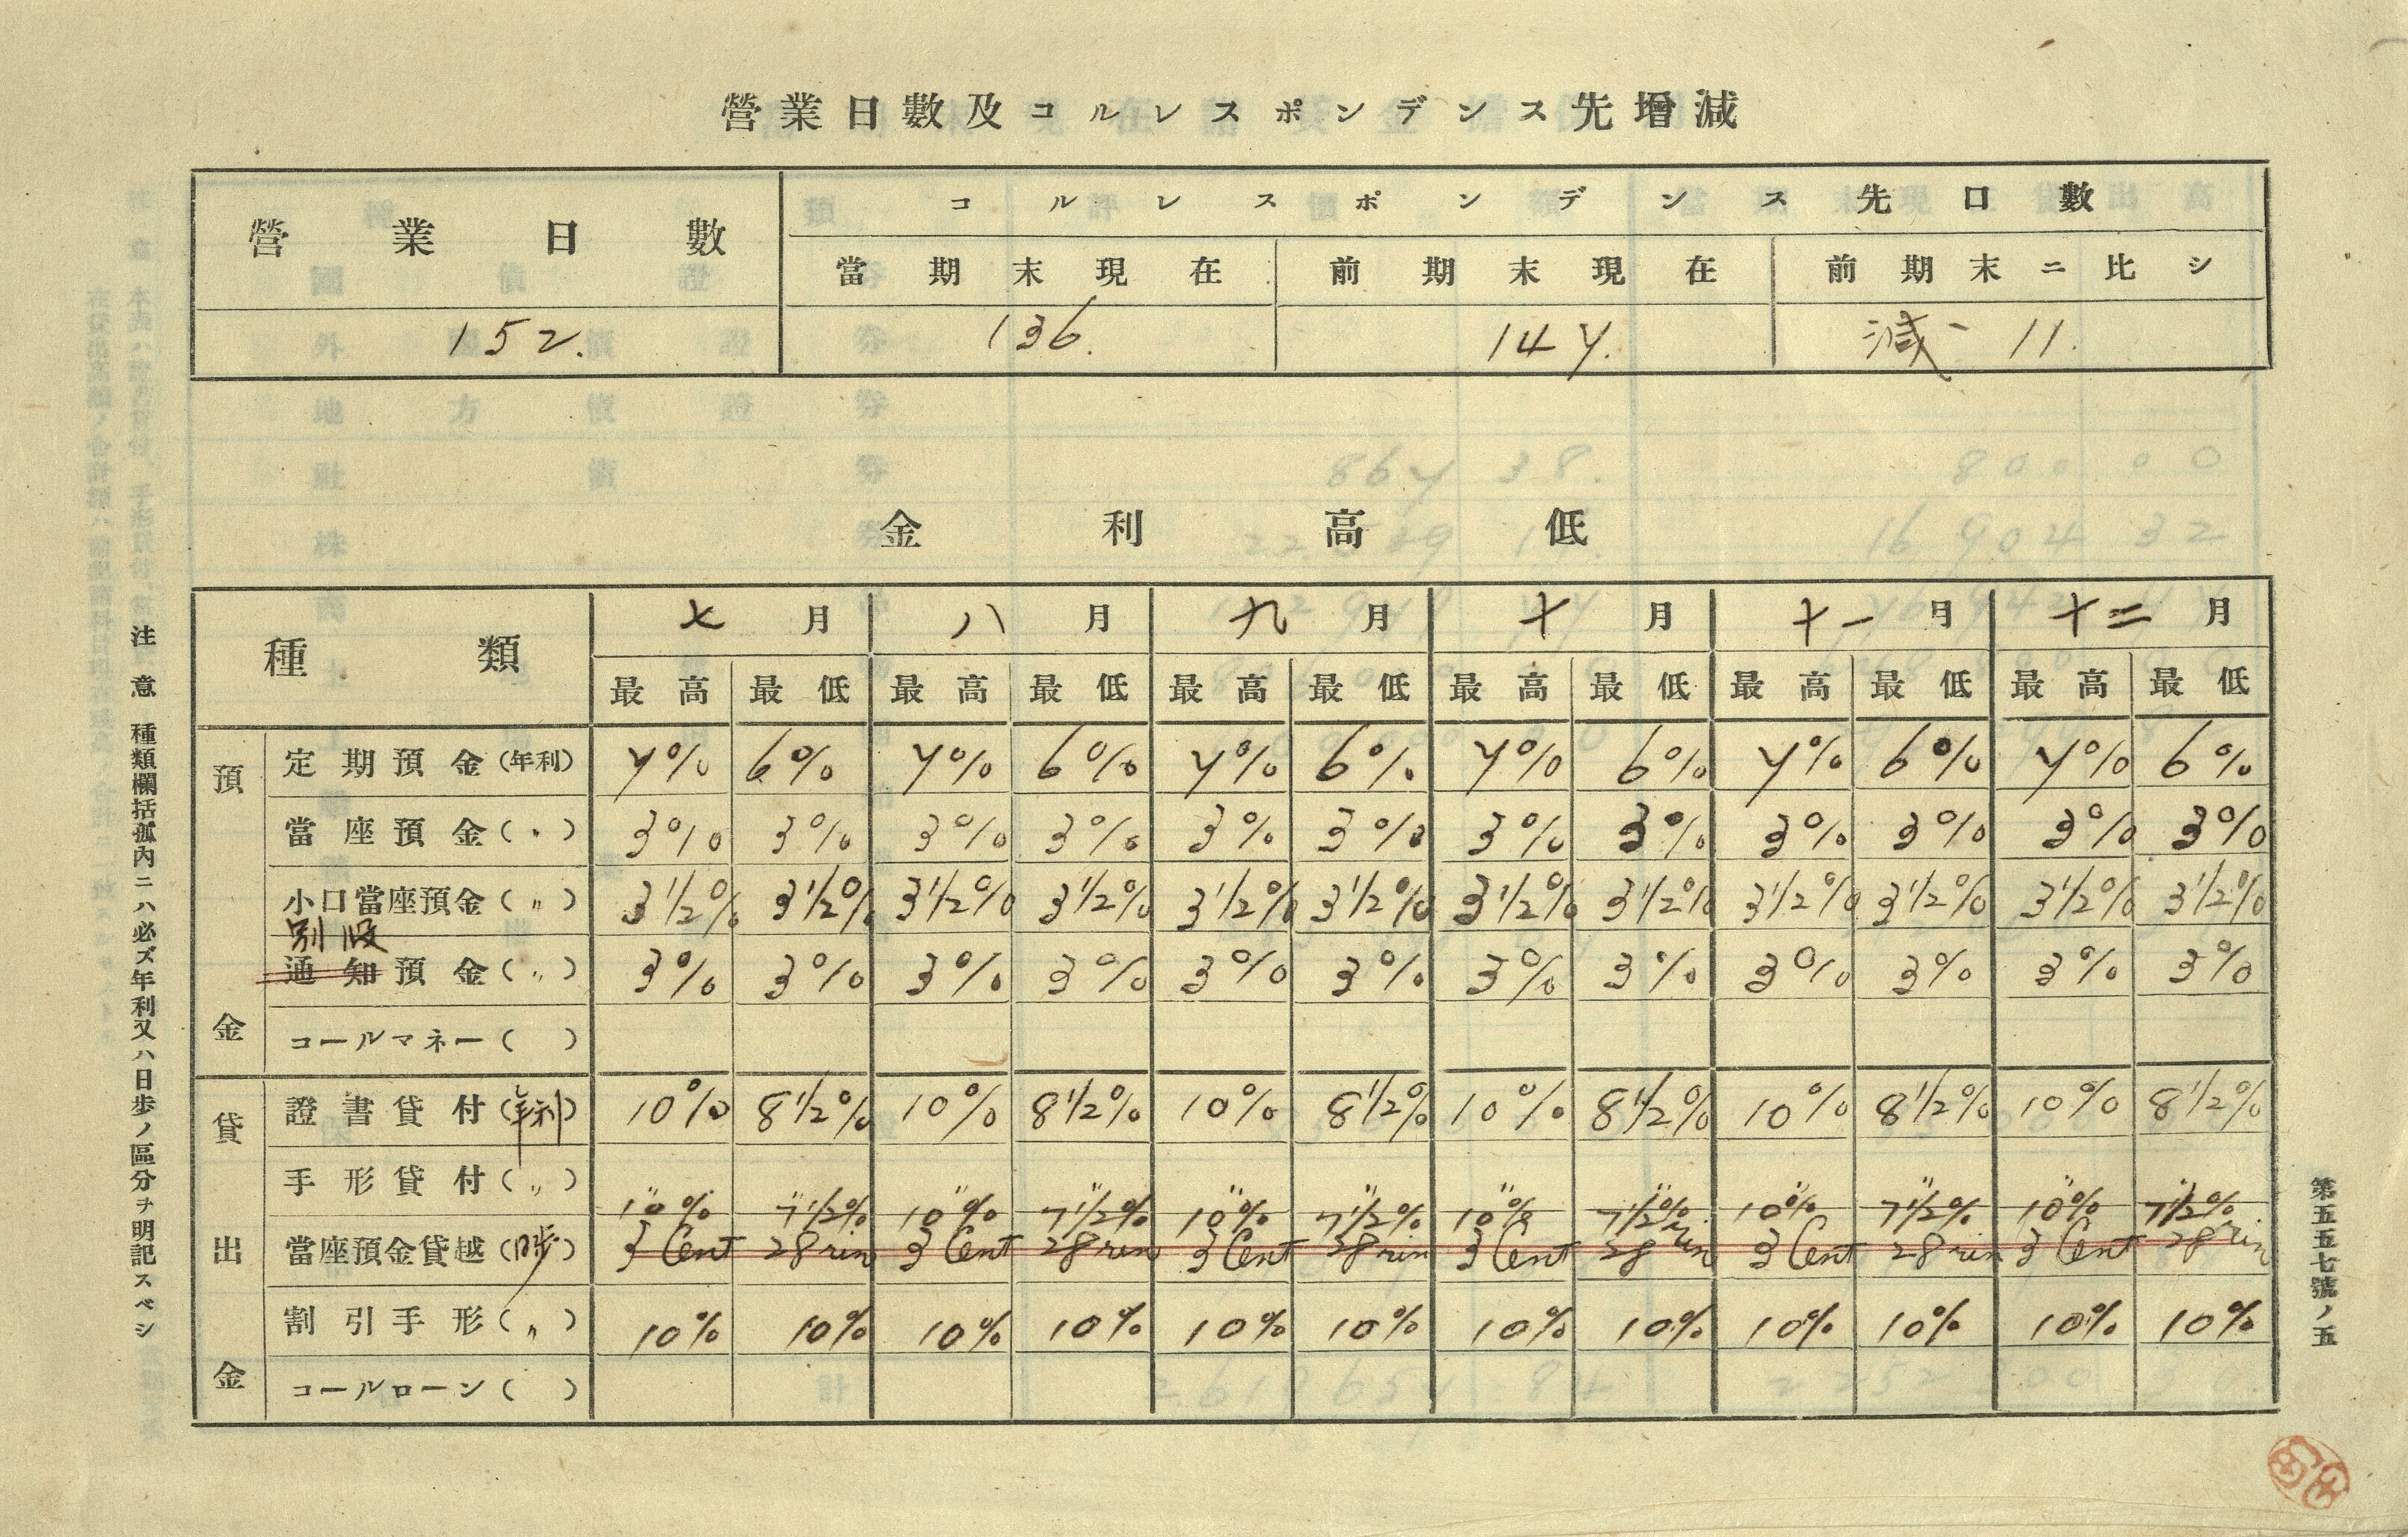 營業日數及コルレスポンデンス先增減
營業日數 コルレスポンデンス先口數
當期末現在 前期末現在 前期末ニ比シ
152. 136. 147. 減 11.
金利高低
種類 七月 八月 九月 十月 十一月 十二月
最高 最低 最高 最低 最高 最低 最高 最低 最高 最低 最高 最低
預金
定期預金(年利) 7% 6% 7% 6% 7% 6% 7% 6% 7% 6% 7% 6%
當座預金(〃) 3% 3% 3% 3% 3% 3% 3% 3% 3% 3% 3% 3%
小口當座預金(〃) 3 1/2% 3 1/2% 3 1/2% 3 1/2% 3 1/2% 3 1/2% 3 1/2% 3 1/2% 3 1/2% 3 1/2% 3 1/2% 3 1/2%
別段
通知預金(〃) 3% 3% 3% 3% 3% 3% 3% 3% 3% 3% 3% 3%
コールマネー( )
貸出金
證書貸付(年利) 10% 8 1/2% 10% 8 1/2% 10% 8 1/2% 10% 8 1/2% 10% 8 1/2% 10% 8 1/2%
手形貸付(〃) 〃 〃 〃 〃 〃 〃 〃 〃 〃 〃 〃 〃
10% 7 1/2% 10% 7 1/2% 10% 7 1/2% 10% 7 1/2% 10% 7 1/2% 10% 7 1/2%
當座預金貸越(日歩) 3 Cent 28 rin 3 Cent 28 rin 3 Cent 28 rin 3 Cent 28 rin 3 Cent 28 rin 3 Cent 28 rin
割引手形(〃) 10% 10% 10% 10% 10% 10% 10% 10% 10% 10% 10% 10%
コールローン( )
注意 種類欄括弧內ニハ必ズ年利又ハ日歩ノ區分ヲ明記スベシ
第五五七號ノ五